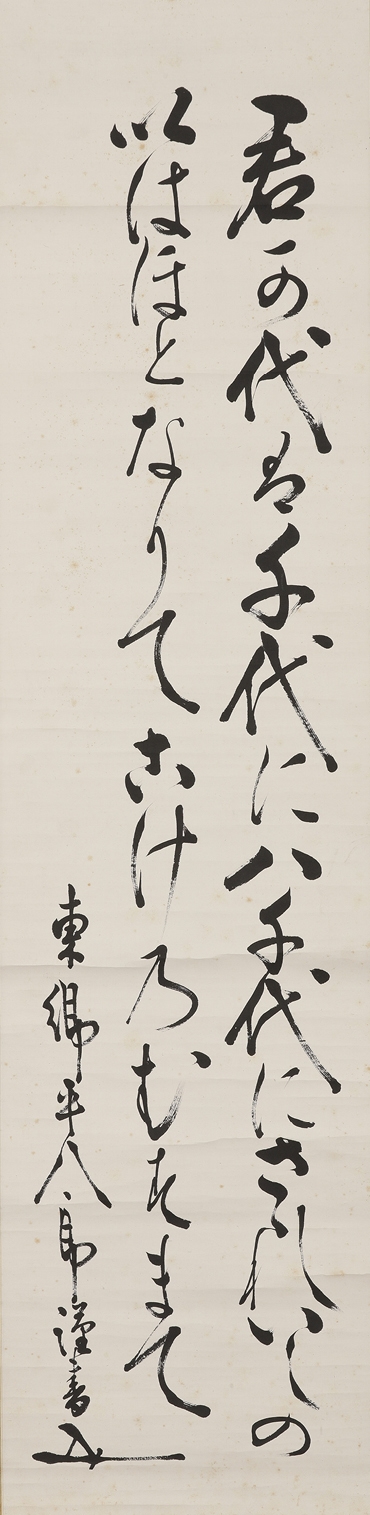 君か代は千代に八千代にさゝれいしの
いはほとなりてこけ乃むすまて
東郷平八郎謹書